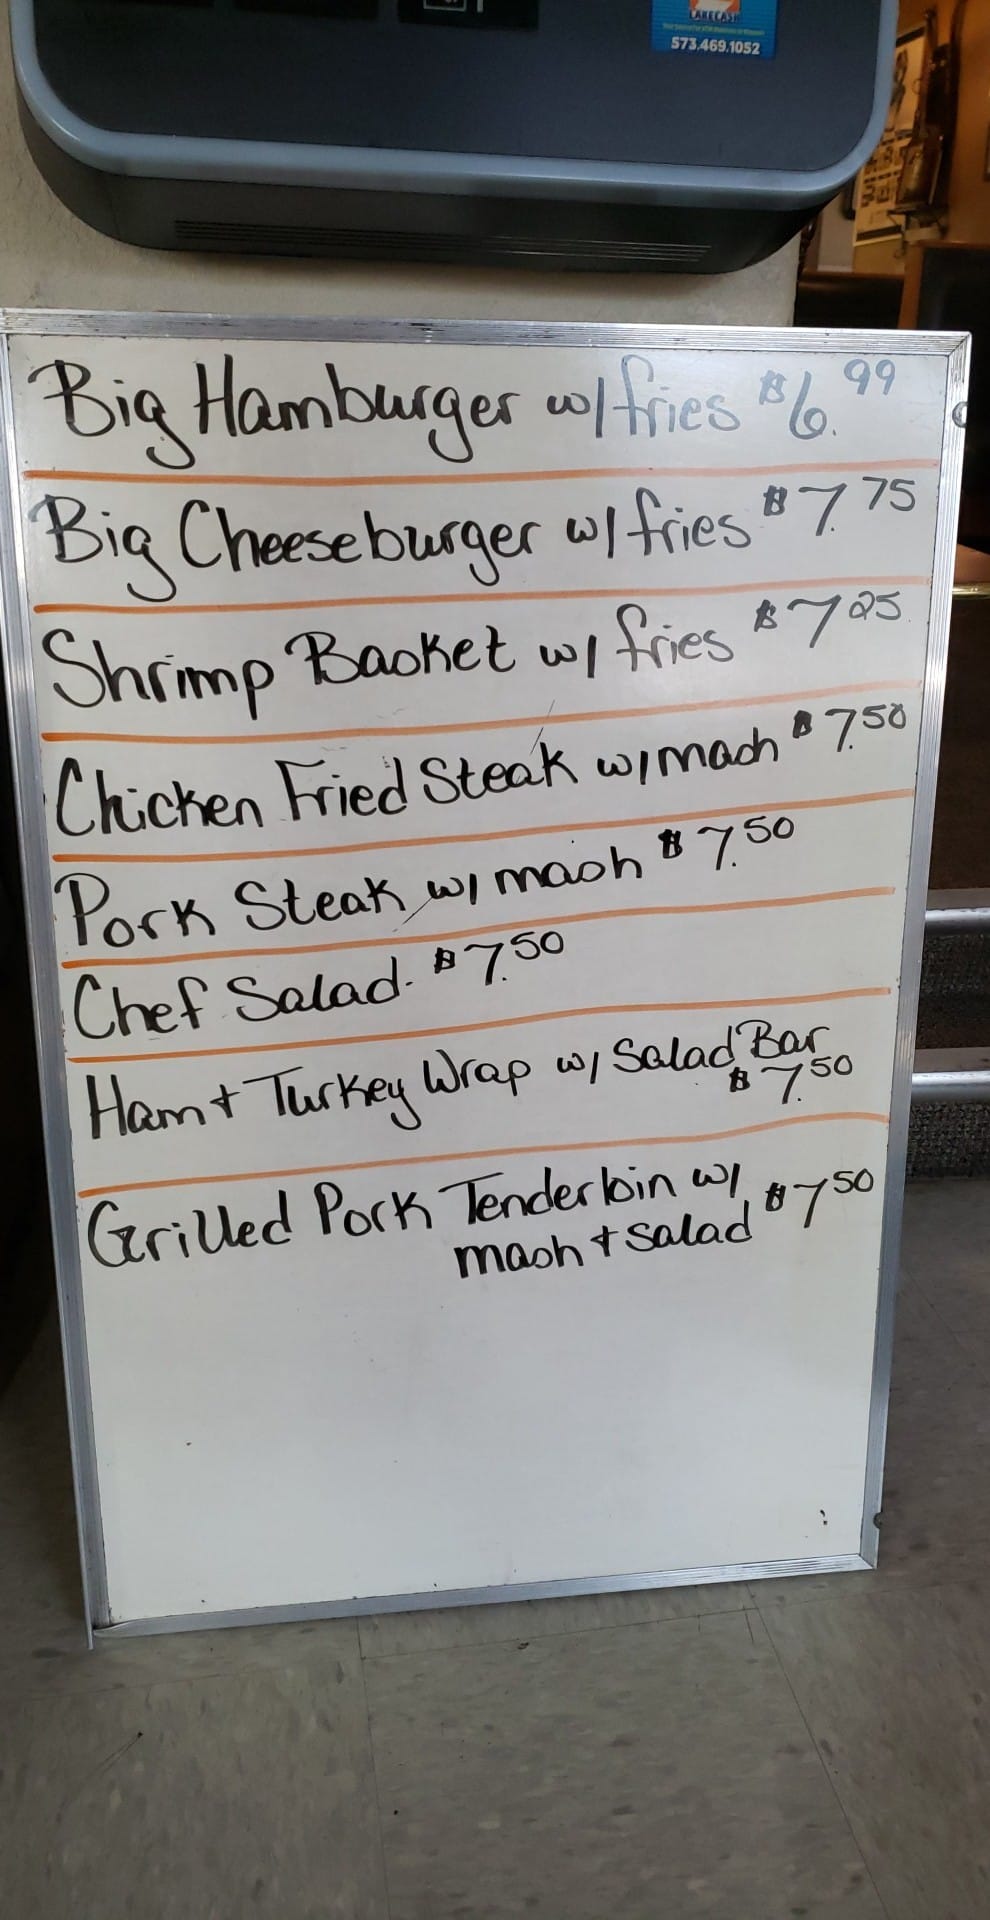 LAKECASH
573.469.1052
Big Hamburger w/ fries $6.99
Big Cheeseburger w/ fries $7.75
Shrimp Basket w/ fries $7.25
Chicken Fried Steak w/ mash $7.50
Pork Steak w/ mash $7.50
Chef Salad. $7.50
Ham + Turkey Wrap w/ Salad Bar
$7.50
Grilled Pork Tenderloin w/ $7.50
mash + salad